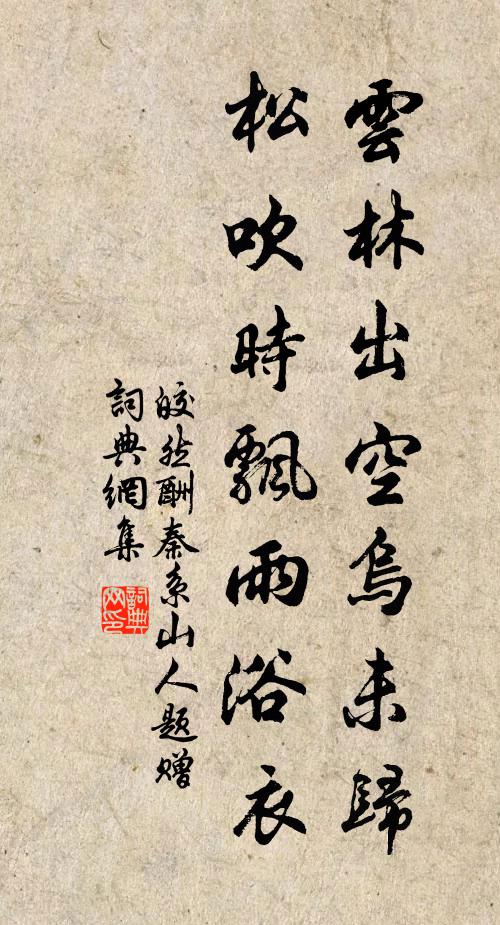 雲林出空烏未歸
松吹時飄雨浴衣
皎然酬秦系山人題贈
詞典網集
詞典网印